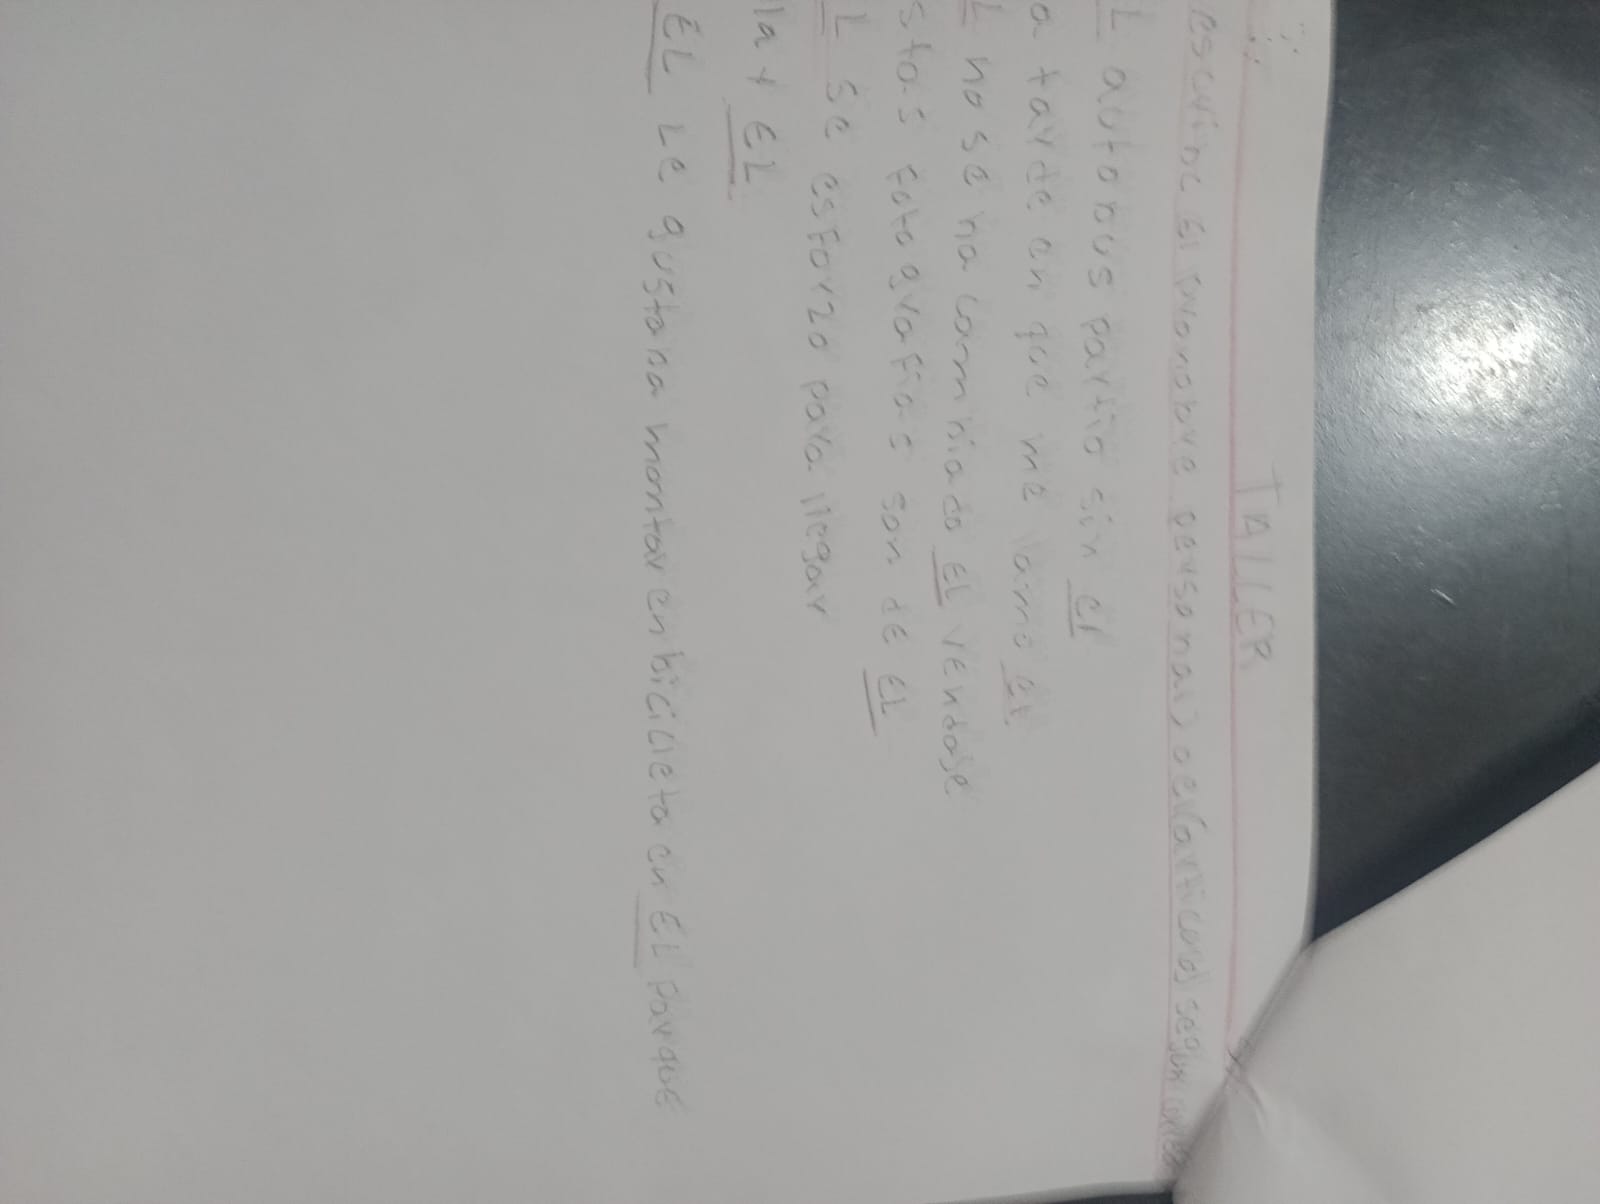 TALLER
escribe El pronobre personal) oel(articulo) según corres
L autobus partio sin el
a tarde en que me lamo el
L no se ha cambiado EL vendaje
stas Fotografias son de EL
L se esforzo para llegar
la y EL
EL Le gustaba montar en bicicleta en EL parque